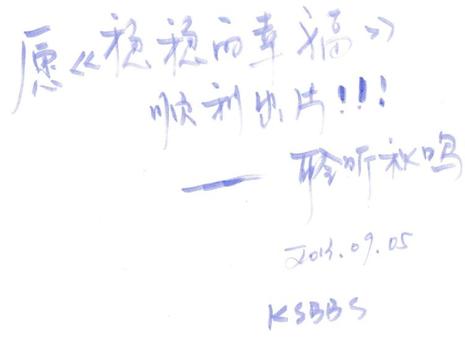 愿《稳稳的幸福》
顺利出片!!!
—— 聆听秋鸣
2013.09.05
KSBBS